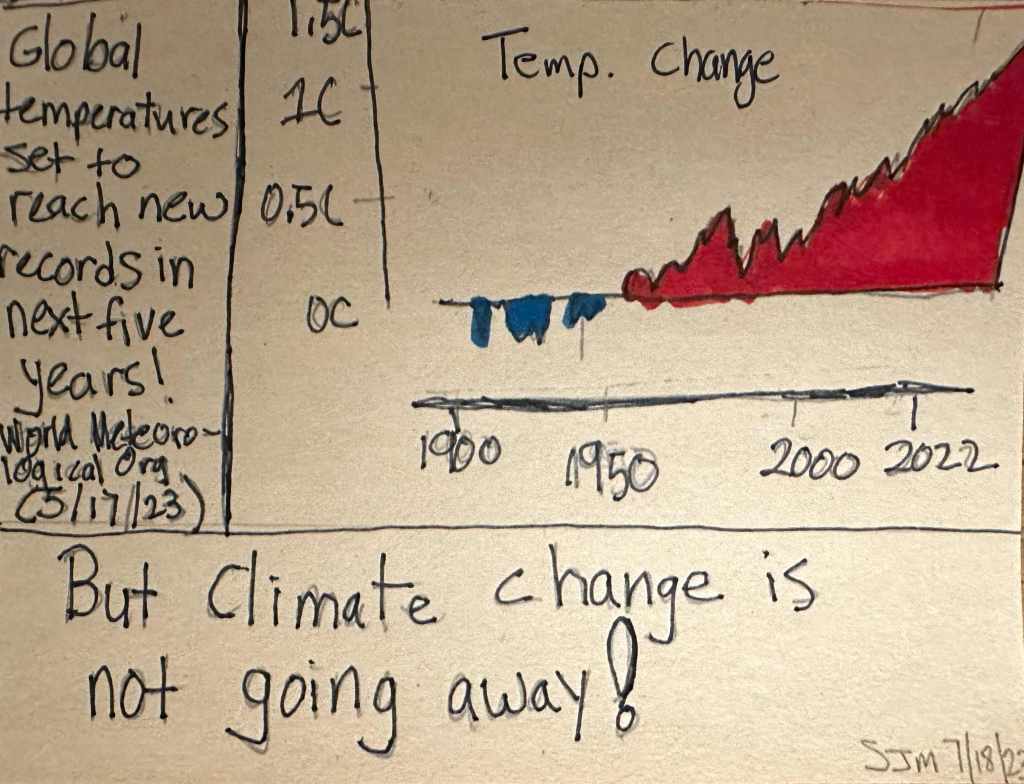 Global
temperatures
set to
reach new
records in
next five
years!
World Meteoro-
logical Org
(5/17/23)
Temp. Change
1.5C
1C
0.5C
0C
1900 1950 2000 2022
But Climate change is
not going away!
SJM 7/18/2